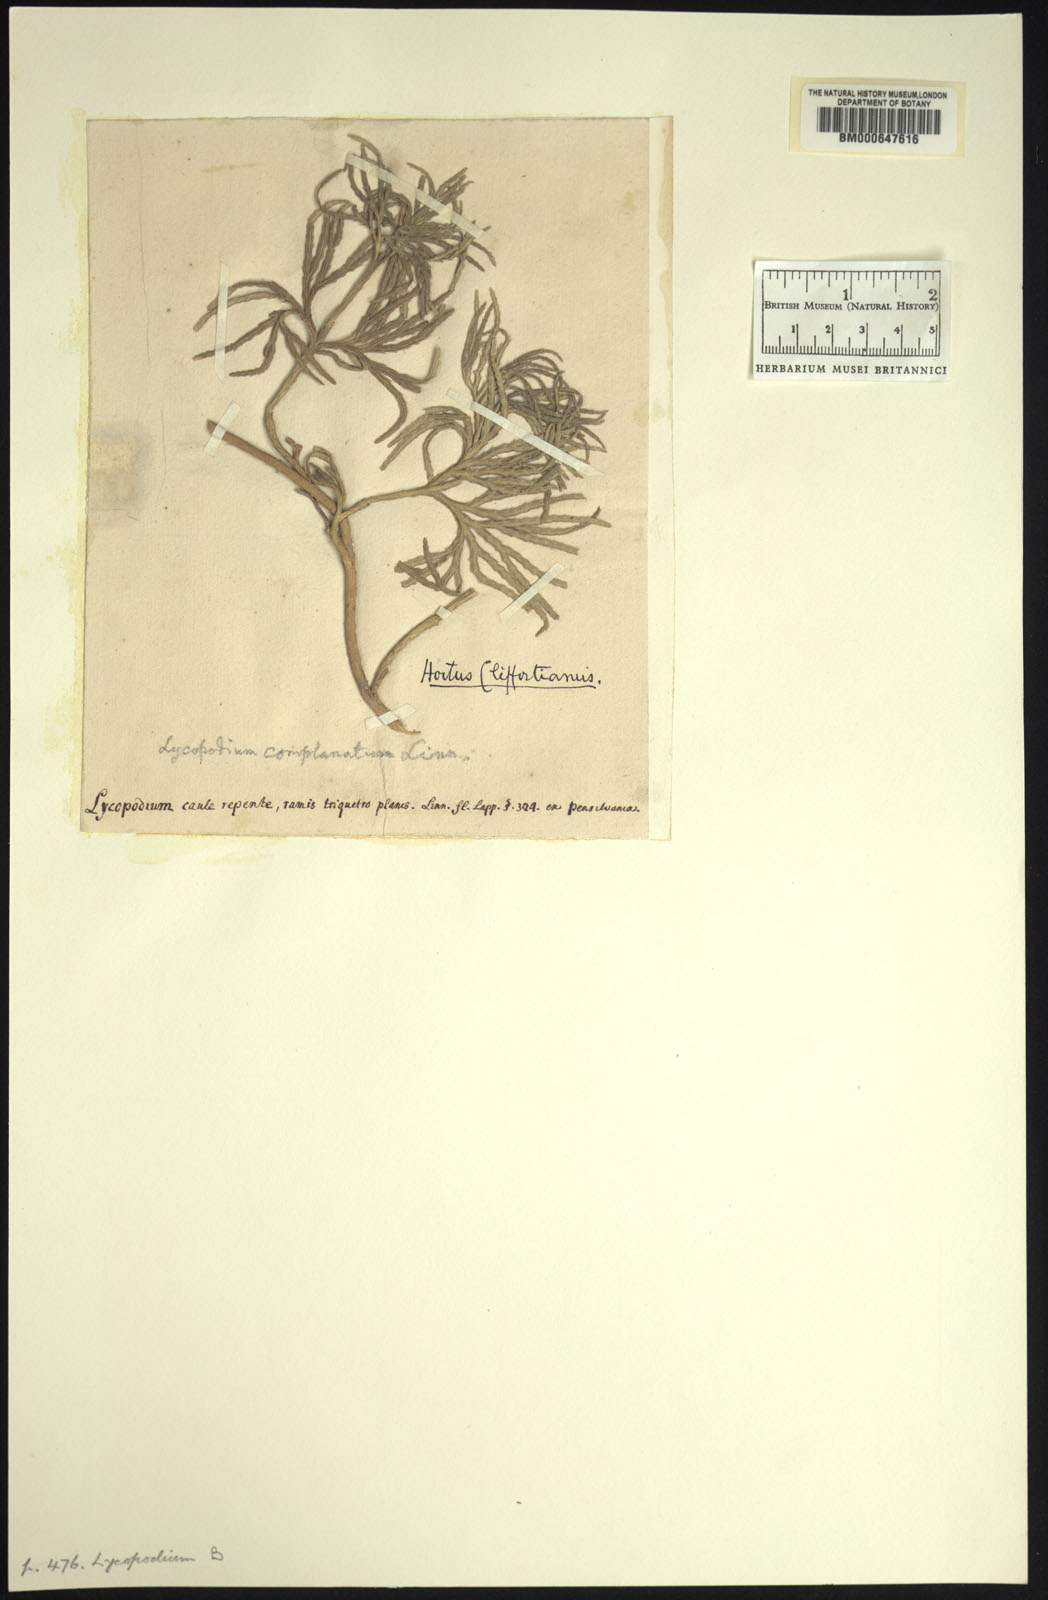 THE NATURAL HISTORY MUSEUM, LONDON
DEPARTMENT OF BOTANY
BM000647616
1 2
BRITISH MUSEUM (NATURAL HISTORY)
1 2 3 4 5
HERBARIUM MUSEI BRITANNICI
Hortus Cliffortianus.
Lycopodium complanatum Linn.
Lycopodium caule repente, ramis triquetro planis. Linn. fl. Lapp. §. 324. ex Pensilvania.
p. 476. Lycopodium B